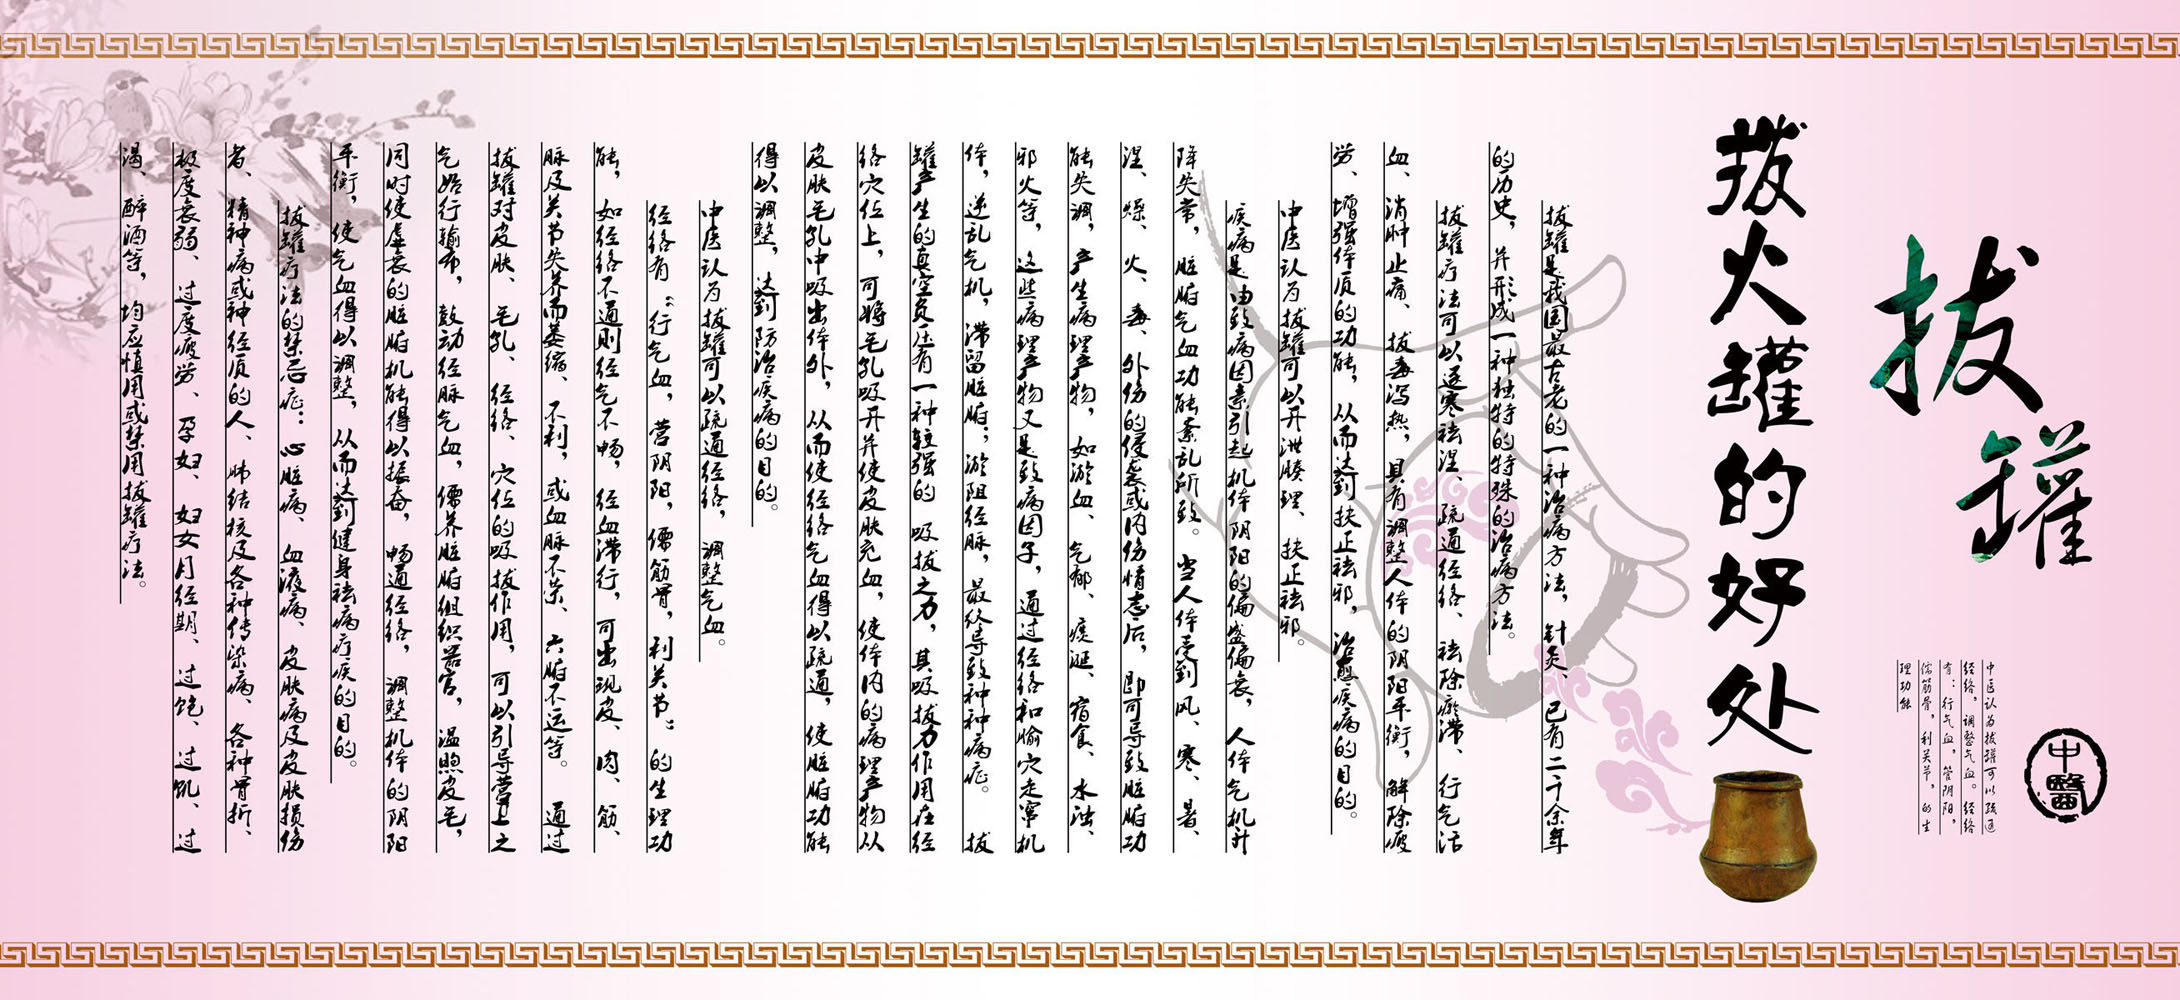 拔罐
中醫
中医认为拔罐可以疏通
经络，调整气血。经络
有：行气血，营阴阳，
儒筋骨，利关节，的生
理功能
拔火罐的好处
拔罐是我国最古老的一种治病方法，针灸、已有二千余年
的历史，并形成一种独特的特殊的治病方法。
拔罐疗法可以逐寒祛湿、疏通经络、祛除瘀滞、行气活
血、消肿止痛、拔毒泻热，具有调整人体的阴阳平衡，解除疲
劳、增强体质的功能，从而达到扶正祛邪，治愈疾病的目的。
中医认为拔罐可以开泄腠理、扶正祛邪。
疾病是由致病因素引起机体阴阳的偏盛偏衰，人体气机升
降失常，脏腑气血功能紊乱所致。当人体受到风、寒、暑、
湿、燥、火、毒、外伤的侵袭或内伤情志后，即可导致脏腑功
能失调，产生病理产物，如淤血、气郁、痰涎、宿食、水浊、
邪火等，这些病理产物又是致病因子，通过经络和腧穴走窜机
体，逆乱气机，滞留脏腑；淤阻经脉，最终导致种种病症。 拔
罐产生的真空负压有一种较强的 吸拔之力，其吸拔力作用在经
络穴位上，可将毛孔吸开并使皮肤充血，使体内的病理产物从
皮肤毛孔中吸出体外，从而使经络气血得以疏通，使脏腑功能
得以调整，达到防治疾病的目的。
中医认为拔罐可以疏通经络，调整气血。
经络有“行气血，营阴阳，儒筋骨，利关节”的生理功
能，如经络不通则经气不畅，经血滞行，可出现皮、肉、筋、
脉及关节失养而萎缩、不利，或血脉不荣、六腑不运等。 通过
拔罐对皮肤、毛孔、经络、穴位的吸拔作用，可以引导营卫之
气始行输布，鼓动经脉气血，儒养脏腑组织器官，温煦皮毛，
同时使虚衰的脏腑机能得以振奋，畅通经络，调整机体的阴阳
平衡，使气血得以调整，从而达到健身祛病疗疾的目的。
拔罐疗法的禁忌症：心脏病、血液病、皮肤病及皮肤损伤
者、精神病或神经质的人、肺结核及各种传染病、各种骨折、
极度衰弱、过度疲劳、孕妇、妇女月经期、过饱、过饥、过
渴、醉酒等，均应慎用或禁用拔罐疗法。